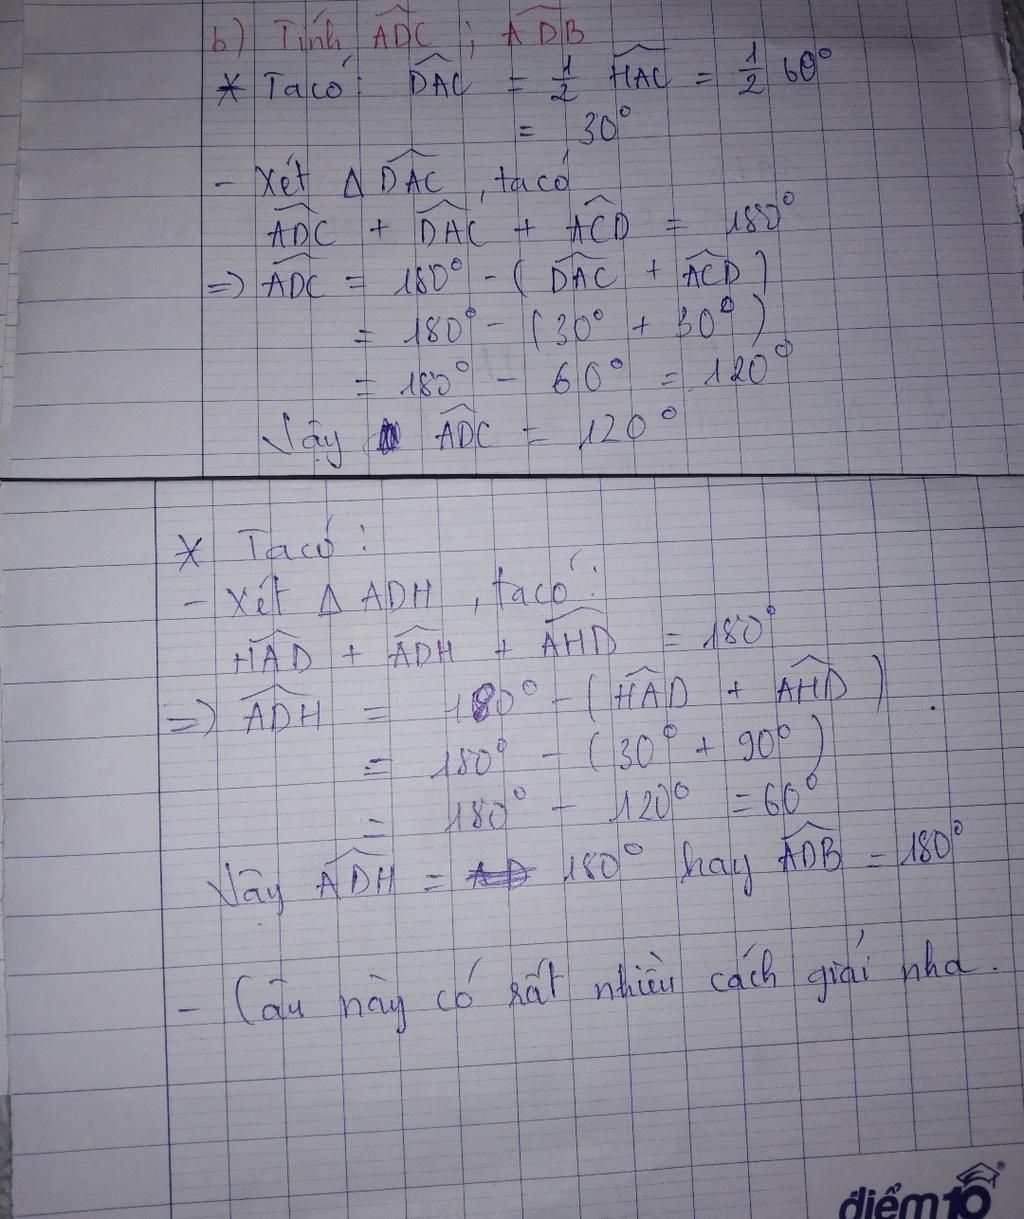 b) Tính ADC ; ADB
* Ta có : DAC = 1/2 HAC = 1/2 60°
= 30°
- Xét Δ DAC , ta có
ADC + DAC + ACD = 180°
=> ADC = 180° - ( DAC + ACD )
= 180° - ( 30° + 30° )
= 180° - 60° = 120°
Vậy ADC = 120°
* Ta có :
- Xét Δ ADH , ta có :
HAD + ADH + AHD = 180°
=> ADH = 180° - ( HAD + AHD ) .
= 180° - ( 30° + 90° )
= 180° - 120° = 60°
Vậy ADH = 180° hay ADB = 180°
- Câu này có rất nhiều cách giải nha .
điểm10